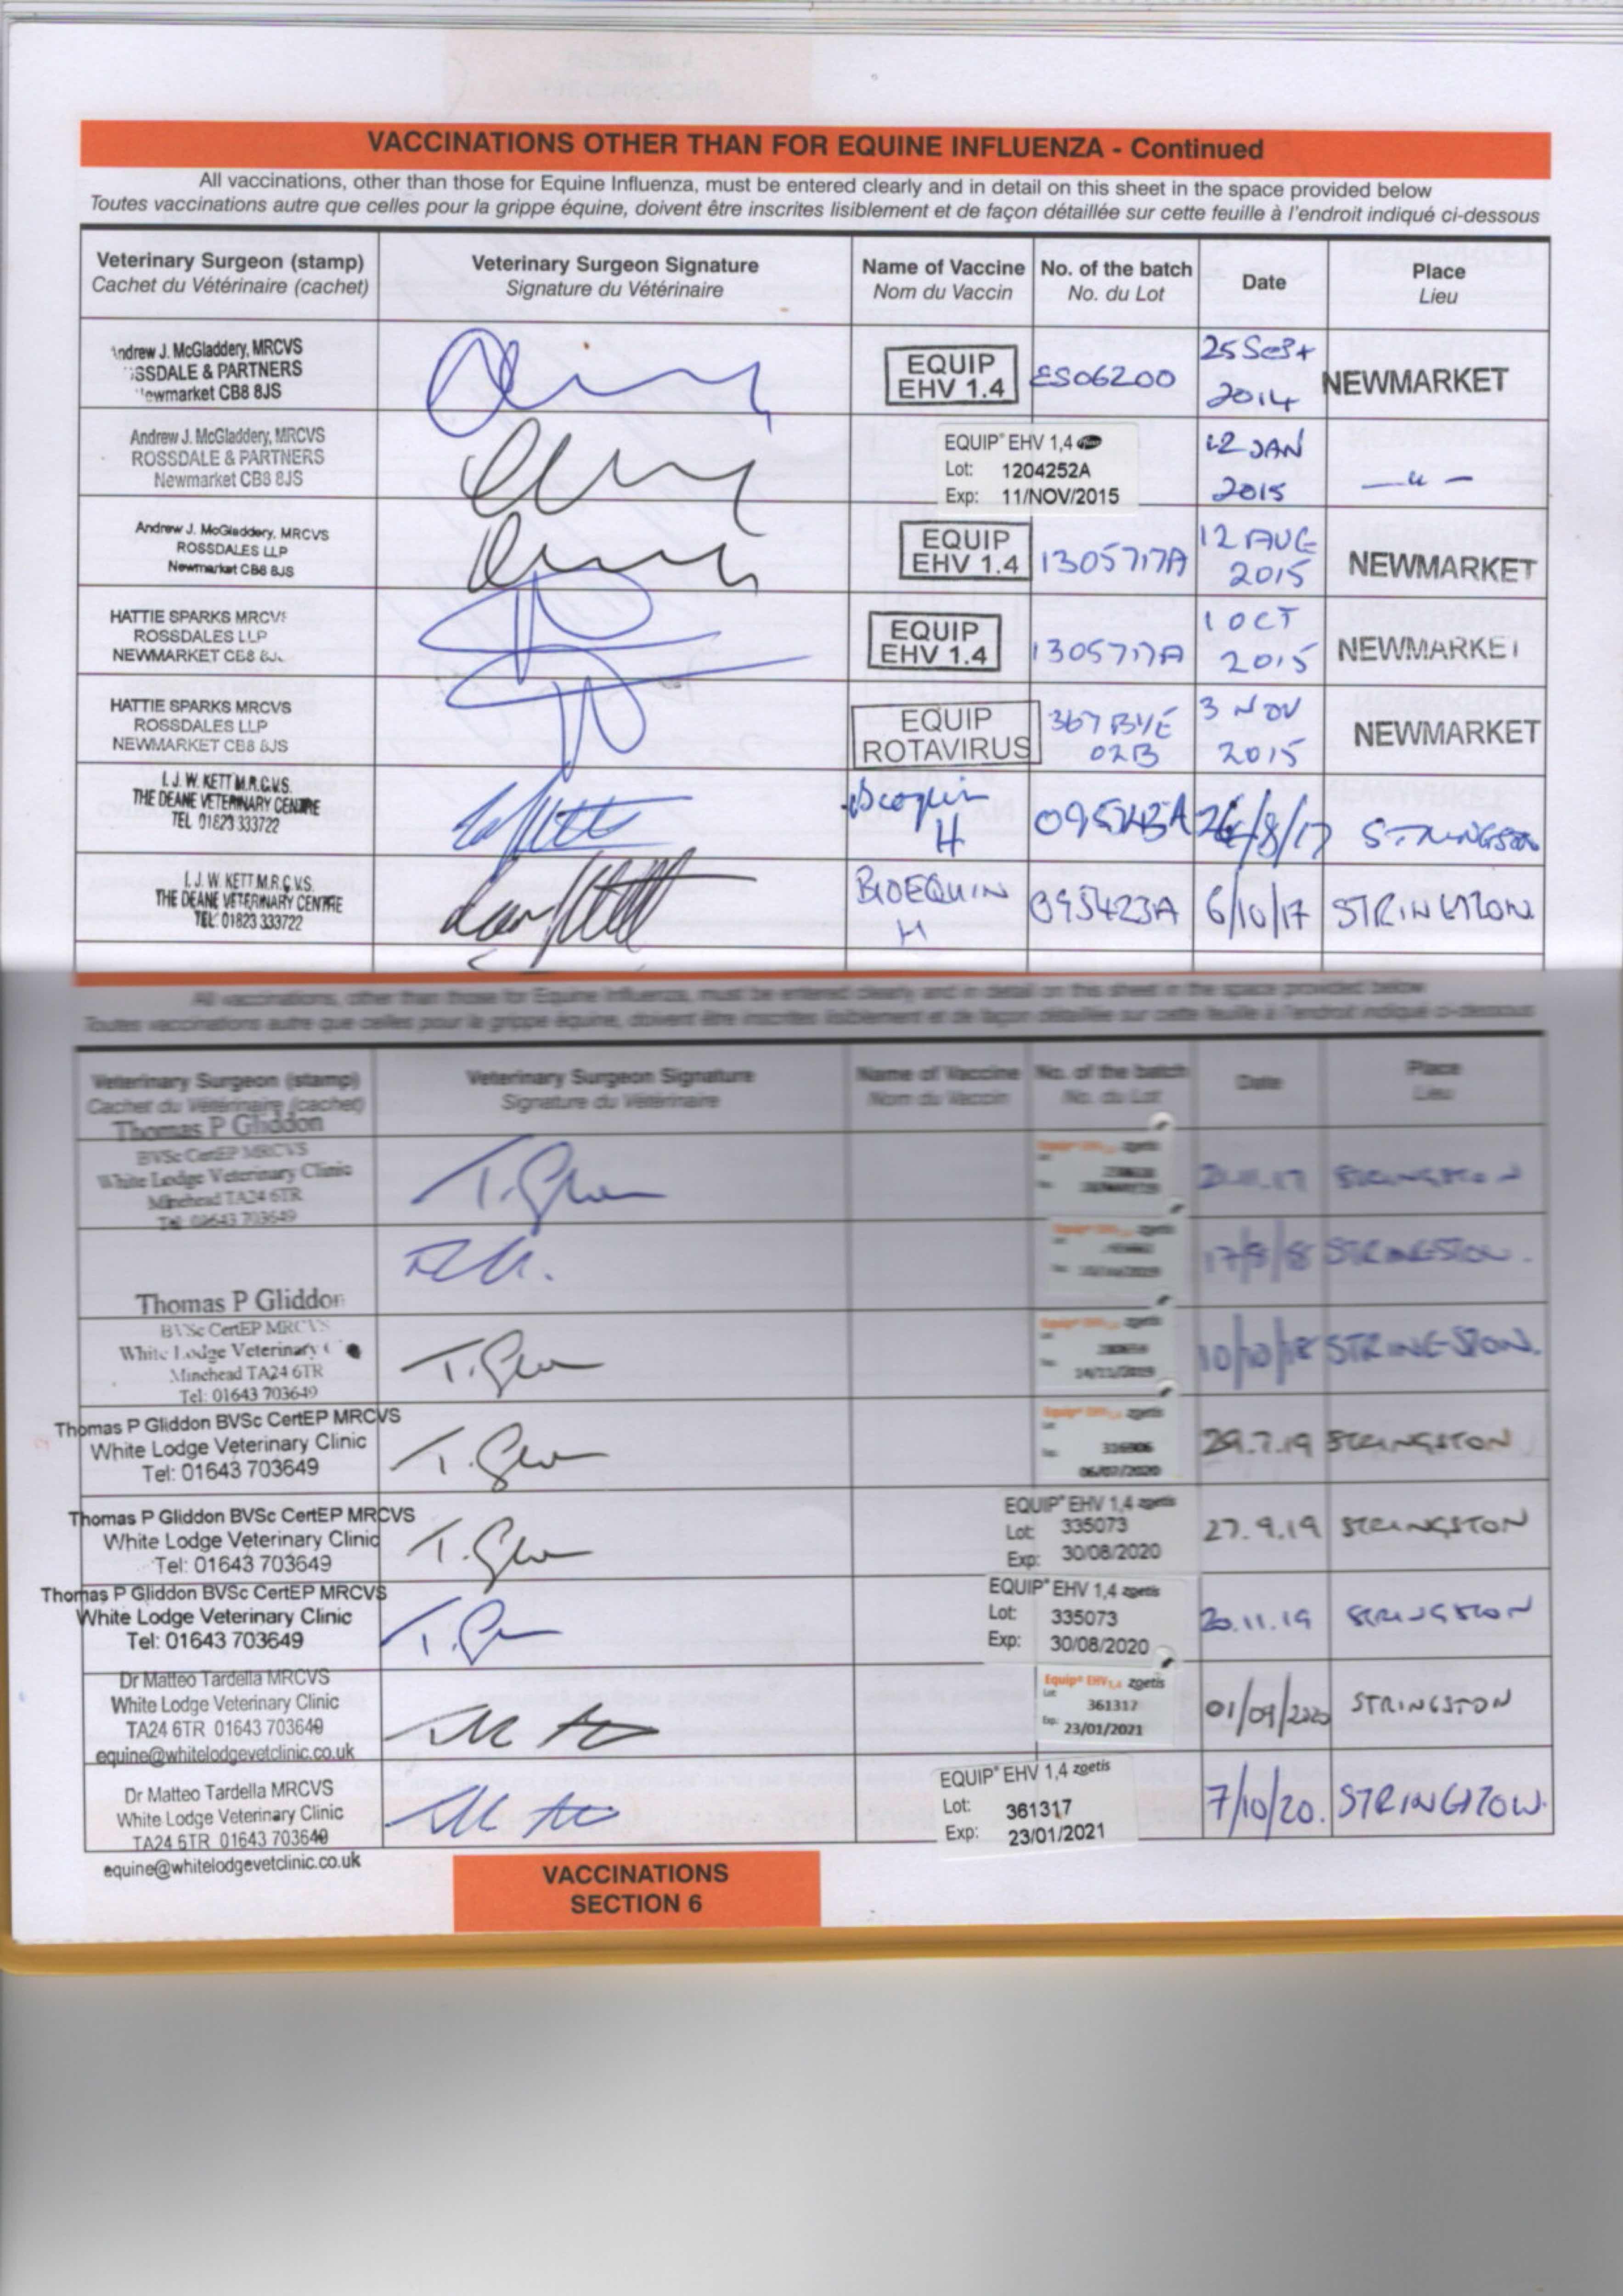 VACCINATIONS OTHER THAN FOR EQUINE INFLUENZA - Continued
All vaccinations, other than those for Equine Influenza, must be entered clearly and in detail on this sheet in the space provided below
Toutes vaccinations autre que celles pour la grippe équine, doivent être inscrites lisiblement et de façon détaillée sur cette feuille à l'endroit indiqué ci-dessous
Veterinary Surgeon (stamp) Veterinary Surgeon Signature Name of Vaccine No. of the batch Date Place
Cachet du Vétérinaire (cachet) Signature du Vétérinaire Nom du Vaccin No. du Lot Lieu
ndrew J. McGladdery, MRCVS
SSDALE & PARTNERS
ewmarket CB8 8JS
EQUIP
EHV 1.4
ES06200
25
2014
NEWMARKET
Andrew J. McGladdery, MRCVS
ROSSDALE & PARTNERS
Newmarket CB8 8JS
EQUIP® EHV 1,4
Lot: 1204252A
Exp: 11/NOV/2015
12 JAN
2015
Andrew J. McGladdery, MRCVS
ROSSDALES LLP
Newmarket CB8 8JS
EQUIP
EHV 1.4
1305717A
12 AUG
2015
NEWMARKET
HATTIE SPARKS MRCV
ROSSDALES LLP
NEWMARKET CB8
EQUIP
EHV 1.4
1305717A
1 OCT
2015
NEWMARKET
HATTIE SPARKS MRCVS
ROSSDALES LLP
NEWMARKET CB8 8JS
EQUIP
ROTAVIRUS
02B
3 NOV
2015
NEWMARKET
I. J. W. KETT M.R.C.V.S.
THE DEANE VETERINARY CENTRE
TEL 01823 333722
H
STRINGSTON
I. J. W. KETT M.R.C.V.S.
THE DEANE VETERINARY CENTRE
TEL: 01823 333722
BIOEQUIN
H
095423A
6/10/17
STRINGSTON
All vaccinations, other than those for Equine Influenza, must be entered clearly and in detail on this sheet in the space provided below
Toutes vaccinations autre que celles pour la grippe équine, doivent être inscrites lisiblement et de façon détaillée sur cette feuille à l'endroit indiqué ci-dessous
Veterinary Surgeon (stamp) Veterinary Surgeon Signature Name of Vaccine No. of the batch Date Place
Cachet du Vétérinaire (cachet) Signature du Vétérinaire Nom du Vaccin No. du Lot Lieu
Thomas P Gliddon
BVSc CertEP MRCVS
White Lodge Veterinary Clinic
Minehead TA24 6TR
Tel: 01643 703649
zoetis
STRINGSTON
17/8/18
STRINGSTON.
Thomas P Gliddon
BVSc CertEP MRCVS
White Lodge Veterinary
Minehead TA24 6TR
Tel: 01643 703649
zoetis
14/11/2019
10/10/18
STRINGSTON.
Thomas P Gliddon BVSc CertEP MRCVS
White Lodge Veterinary Clinic
Tel: 01643 703649
zoetis
316906
06/07/2020
29.7.19
STRINGSTON
Thomas P Gliddon BVSc CertEP MRCVS
White Lodge Veterinary Clinic
Tel: 01643 703649
EQUIP® EHV 1,4 zoetis
Lot: 335073
Exp: 30/08/2020
27.9.19
STRINGSTON
Thomas P Gliddon BVSc CertEP MRCVS
White Lodge Veterinary Clinic
Tel: 01643 703649
EQUIP® EHV 1,4 zoetis
Lot: 335073
Exp: 30/08/2020
20.11.19
STRINGSTON
Dr Matteo Tardella MRCVS
White Lodge Veterinary Clinic
TA24 6TR 01643 703649
equine@whitelodgevetclinic.co.uk
Equip® EHV1,4 zoetis
Lot: 361317
Exp: 23/01/2021
01/09/2020
STRINGSTON
Dr Matteo Tardella MRCVS
White Lodge Veterinary Clinic
TA24 6TR 01643 703649
equine@whitelodgevetclinic.co.uk
EQUIP® EHV 1,4 zoetis
Lot: 361317
Exp: 23/01/2021
7/10/20.
STRINGSTON.
VACCINATIONS
SECTION 6